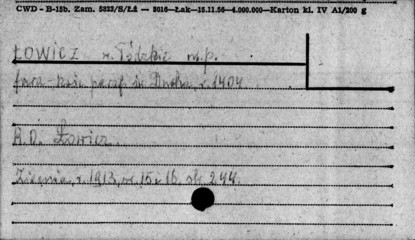 CWD - B-15b. Zam. 5833/S/Łź — 5016—Łak—15.11.56—4.000.000—Karton kl. IV A1/200 g
ŁOWICZ w. Łódzkie m.p.
fara - kość. paraf. św. Ducha, r. 1404
A.D. Łowicz
Ziemia, r. 1913, nr. 15 i 16, str. 244